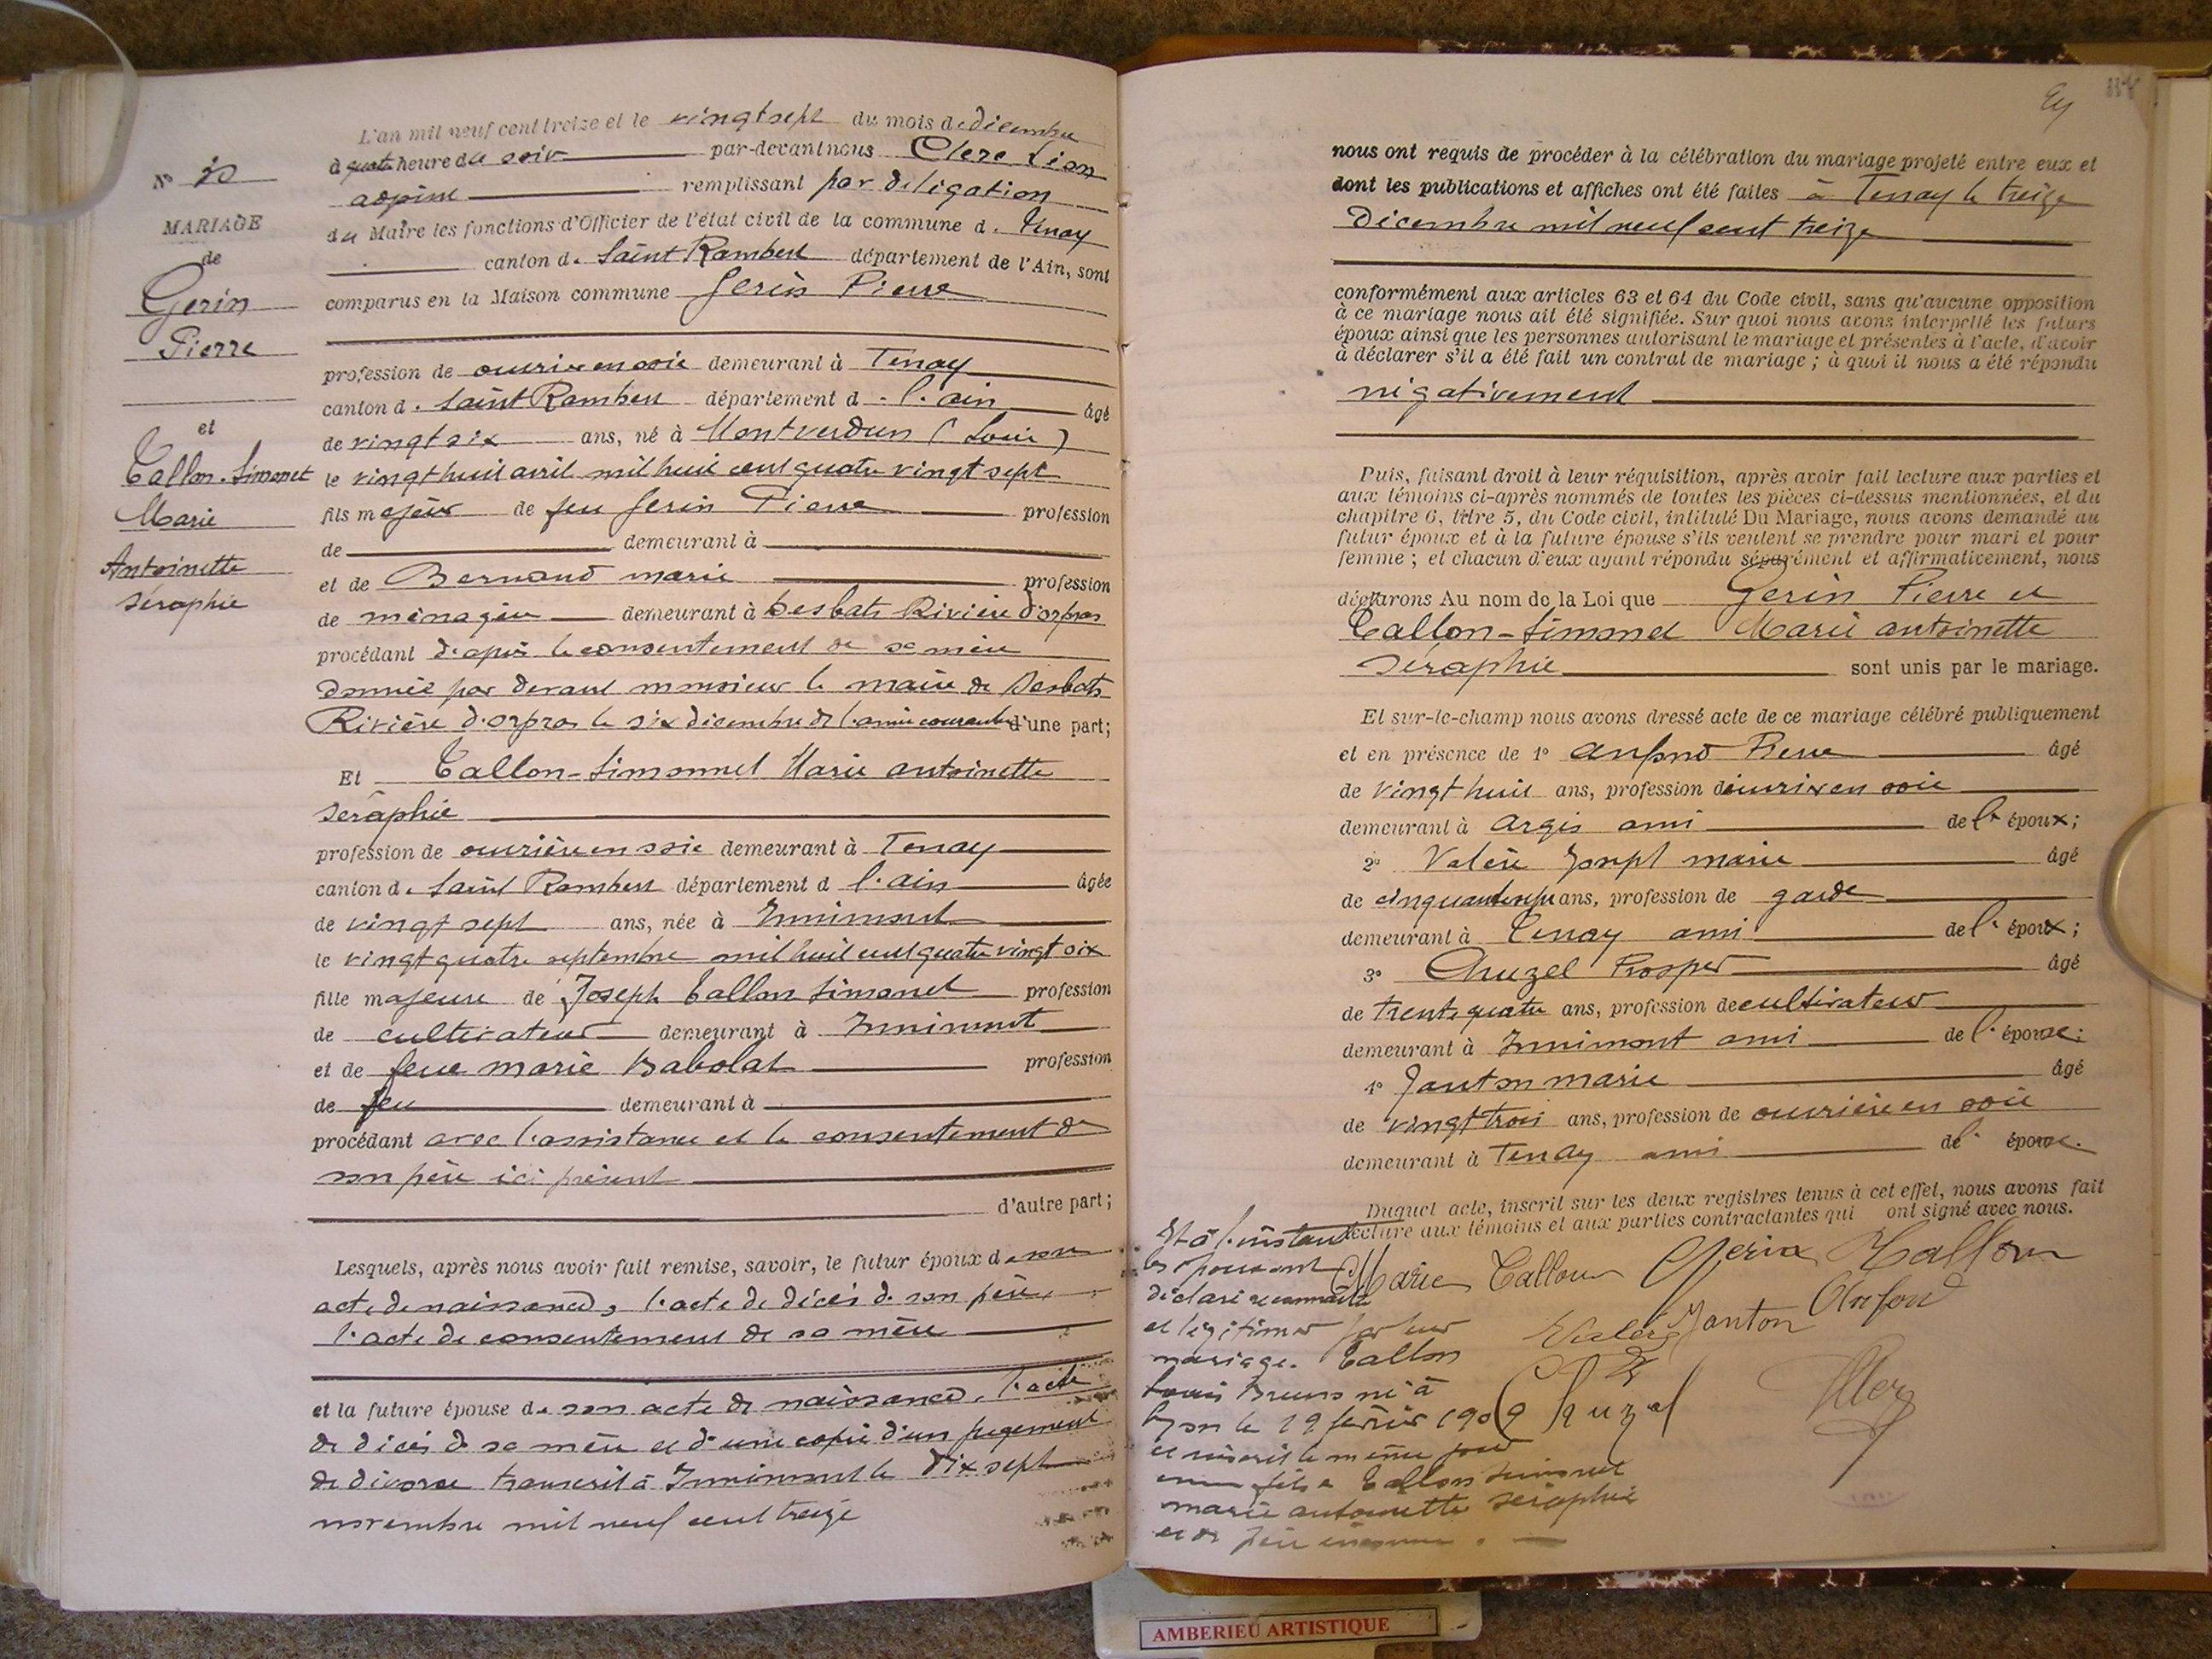 L'an mil neuf cent treize et le vingt sept du mois de Décembre
à quatre heure du soir par-devant nous Clerc Léon
adjoint remplissant par délégation
du Maire les fonctions d'Officier de l'état civil de la commune d. Tenay
canton d. Saint Rambert département de l'Ain, sont
comparus en la Maison commune Gerin Pierre
profession de ouvrier en soie demeurant à Tenay
canton d. Saint Rambert département d. l'ain âgé
de vingt six ans, né à Montverdun (Loire)
le vingt huit avril mil huit cent quatre vingt sept
fils majeur de feu Gerin Pierre profession
de demeurant à
et de Bernand marie profession
de ménagère demeurant à Debats Rivière d'orpra
procédant d'après le consentement de sa mère
donnée par devant monsieur le maire de Debats
Rivière d'orpra le six décembre de l'année courante d'une part;
Et Tallon-Simonnet Marie antoinette
séraphie
profession de ouvrière en soie demeurant à Tenay
canton d. Saint Rambert département d l'ain âgée
de vingt sept ans, née à Innimont
le vingt quatre septembre mil huit cent quatre vingt six
fille majeure de Joseph Tallon Simonet profession
de cultivateur demeurant à Innimont
et de feue marie Babolat profession
de feu demeurant à
procédant avec l'assistance et le consentement de
son père ici présent
d'autre part;
Lesquels, après nous avoir fait remise, savoir, le futur époux de son
acte de naissance, l'acte de décès de son père,
l'acte de consentement de sa mère
et la future épouse de son acte de naissance, l'acte
de décès de sa mère et d'une copie d'un jugement
de divorce transcrit à Innimont le dix sept
novembre mil neuf cent treize
N°
MARIAGE
de
Gerin
Pierre
et
Tallon-Simonet
Marie
Antoinette
séraphie
nous ont requis de procéder à la célébration du mariage projeté entre eux et
dont les publications et affiches ont été faites à Tenay le treize
Décembre mil neuf cent treize
conformément aux articles 63 et 64 du Code civil, sans qu'aucune opposition
à ce mariage nous ait été signifiée. Sur quoi nous avons interpellé les futurs
époux ainsi que les personnes autorisant le mariage et présentes à l'acte, d'avoir
à déclarer s'il a été fait un contrat de mariage ; à quoi il nous a été répondu
négativement
Puis, faisant droit à leur réquisition, après avoir fait lecture aux parties et
aux témoins ci-après nommés de toutes les pièces ci-dessus mentionnées, et du
chapitre 6, titre 5, du Code civil, intitulé Du Mariage, nous avons demandé au
futur époux et à la future épouse s'ils veulent se prendre pour mari et pour
femme ; et chacun d'eux ayant répondu séparément et affirmativement, nous
déclarons Au nom de la Loi que Gerin Pierre et
Tallon-Simonet Marie antoinette
séraphie sont unis par le mariage.
Et sur-le-champ nous avons dressé acte de ce mariage célébré publiquement
et en présence de 1° Anfond Pierre âgé
de vingt huit ans, profession d'ouvrier en soie
demeurant à Argis ami de l' époux;
2° Valère Joseph marie âgé
de cinquante sept ans, profession de garde
demeurant à Tenay ami de l' époux;
3° Chuzel Prosper âgé
de trente quatre ans, profession de cultivateur
demeurant à Innimont ami de l' épouse;
4° Janton marie âgé
de vingt trois ans, profession de ouvrière en soie
demeurant à Tenay ami de l' épouse.
Duquel acte, inscrit sur les deux registres tenus à cet effet, nous avons fait
lecture aux témoins et aux parties contractantes qui ont signé avec nous.
Marie Tallon Gerin Tallon
Valère Janton Anfond
Chuzel Clerc
Et à l'instant
les époux ont
déclaré reconnaître
et légitimer par leur
mariage. Tallon
Louis Bruno né à
Lyon le 19 février 1909
et inscrit le même jour
fils de Tallon Simonet
marie antoinette séraphie
et de père inconnu.
AMBERIEU ARTISTIQUE